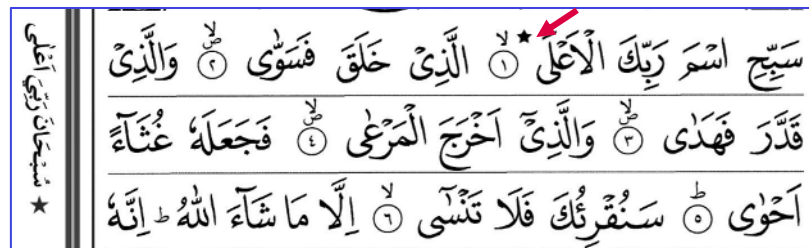 سَبِّحِ اسْمَ رَبِّكَ الْاَعْلَى ★ ۙ ۝۱ الَّذِیْ خَلَقَ فَسَوّٰی ۪ۙ ۝۲ وَالَّذِیْ
قَدَّرَ فَهَدٰی ۪ۙ ۝۳ وَالَّذِیْۤ اَخْرَجَ الْمَرْعٰی ۪ۙ ۝۴ فَجَعَلَهٗ غُثَآءً
اَحْوٰی ؕ ۝۵ سَنُقْرِئُكَ فَلَا تَنْسٰۤی ۙ ۝۶ اِلَّا مَا شَآءَ اللّٰهُ ؕ اِنَّهٗ
★ سُبْحَانَ رَبِّیَ اَعْلٰی